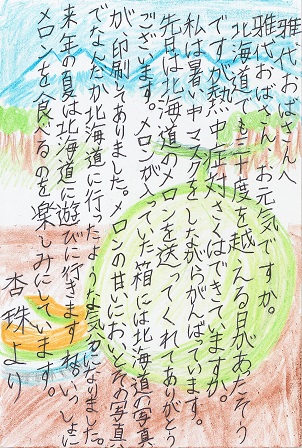 雅代おばさんへ
雅代おばさん、お元気ですか。
北海道でも三十度を越える日があったそう
ですが熱中症対さくはできていますか。
私は暑い中マスクをしながらがんばっています。
先日は北海道のメロンを送ってくれてありがとう
ございます。メロンが入っていた箱には北海道の写真
が、印刷してありました。メロンの甘いにおいとその写真
でなんだか北海道に行ったような気分になりました。
来年の夏は北海道に遊びに行きますね。いっしょに
メロンを食べるのを楽しみにしています。
杏珠より